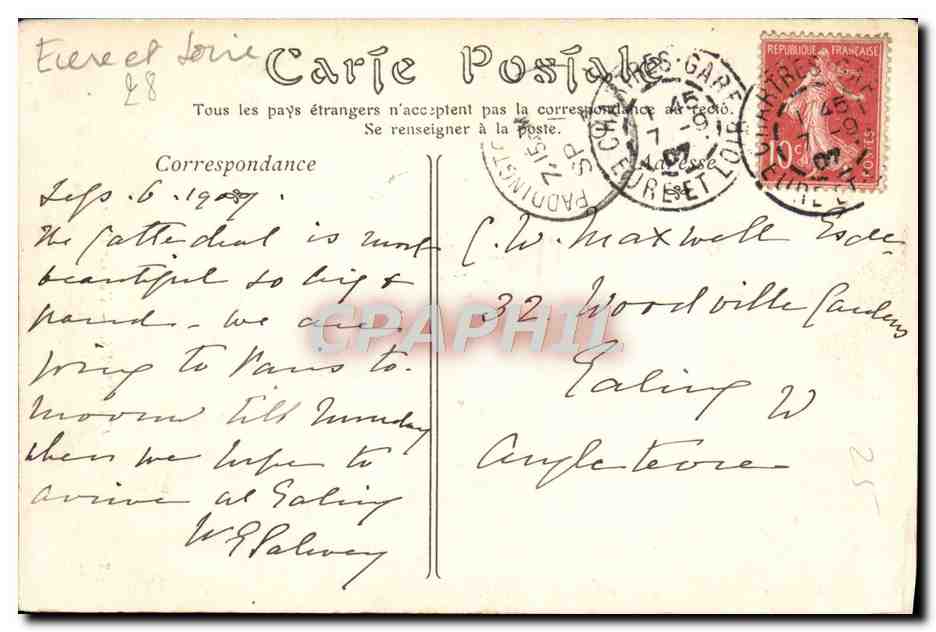 Eure et Loire
28
Carte Postale
Tous les pays étrangers n'acceptent pas la correspondance au recto.
Se renseigner à la poste.
Correspondance
Adresse
REPUBLIQUE FRANÇAISE
10c
POSTES
CHARTRES-GARE
45
7 -9
07
EURE ET LOIR
CHARTRES GARE
45
7 -9
07
EURE ET
PADDINGTO
7.15
SP
Sep. 6. 1907.
The Cathedral is most
beautiful so big &
grand - we are
going to Paris to-
morrow till Monday
when we hope to
arrive at Ealing
C. W. Maxwell Esqre
32 Woodville Gardens
Ealing W
Angleterre
25
CPAPHIL